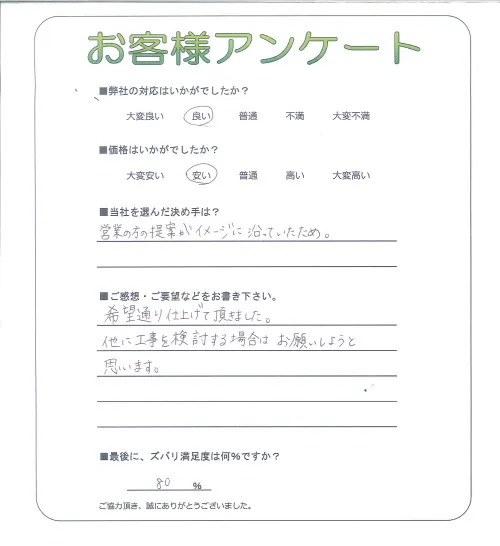 お客様アンケート
■弊社の対応はいかがでしたか？
大変良い 良い 普通 不満 大変不満
■価格はいかがでしたか？
大変安い 安い 普通 高い 大変高い
■当社を選んだ決め手は？
営業の方の提案がイメージに沿っていたため。
■ご感想・ご要望などをお書き下さい。
希望通り仕上げて頂きました。
他に工事を検討する場合はお願いしようと
思います。
■最後に、ズバリ満足度は何％ですか？
80 ％
ご協力頂き、誠にありがとうございました。